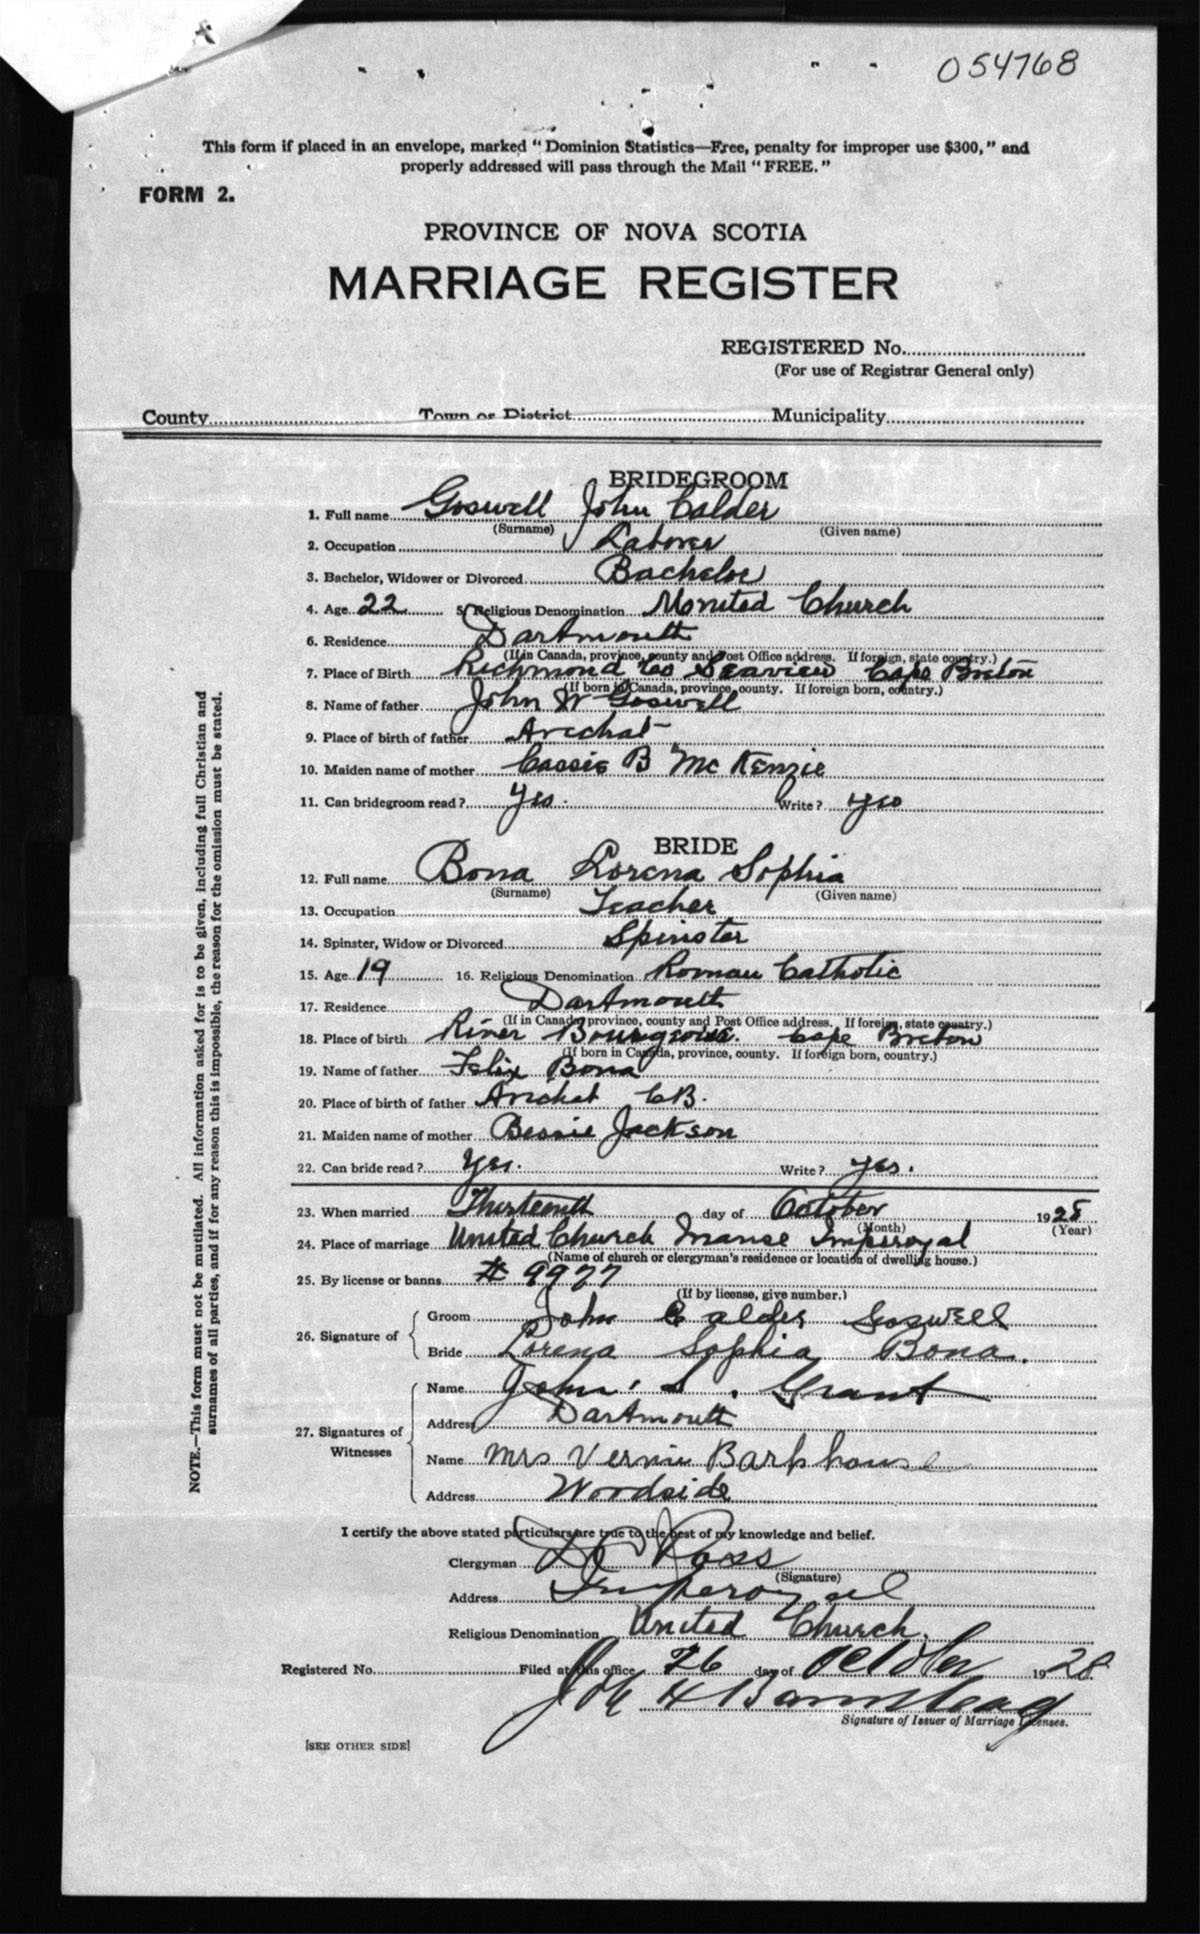 054768
This form if placed in an envelope, marked "Dominion Statistics—Free, penalty for improper use $300," and
properly addressed will pass through the Mail "FREE."
FORM 2.
PROVINCE OF NOVA SCOTIA
MARRIAGE REGISTER
REGISTERED No.
(For use of Registrar General only)
County Town or District Municipality
BRIDEGROOM
1. Full name Goswell John Calder
(Surname) (Given name)
2. Occupation Laborer
3. Bachelor, Widower or Divorced Bachelor
4. Age 22 5. Religious Denomination United Church
6. Residence Dartmouth
(If in Canada, province, county and Post Office address. If foreign, state country.)
7. Place of Birth Richmond Co Seaview Cape Breton
(If born in Canada, province, county. If foreign born, country.)
8. Name of father John W Goswell
9. Place of birth of father Arichat
10. Maiden name of mother Cassie B McKenzie
11. Can bridegroom read? Yes. Write? yes
BRIDE
12. Full name Bona Lorena Sophia
(Surname) (Given name)
13. Occupation Teacher
14. Spinster, Widow or Divorced Spinster
15. Age 19 16. Religious Denomination Roman Catholic
17. Residence Dartmouth
(If in Canada, province, county and Post Office address. If foreign, state country.)
18. Place of birth River Bourgeois. Cape Breton
(If born in Canada, province, county. If foreign born, country.)
19. Name of father Felix Bona
20. Place of birth of father Arichat CB.
21. Maiden name of mother Bessie Jackson
22. Can bride read? Yes. Write? yes.
23. When married Thirteenth day of October 1928
(Month) (Year)
24. Place of marriage United Church Manse Imperoyal
(Name of church or clergyman's residence or location of dwelling house.)
25. By license or banns # 9977
(If by license, give number.)
26. Signature of Groom John Calder Goswell
Bride Lorena Sophia Bona.
27. Signatures of Witnesses Name John S. Grant
Address Dartmouth
Name Mrs Vernie Barkhouse
Address Woodside
I certify the above stated particulars are true to the best of my knowledge and belief.
Clergyman Ross
(Signature)
Address Imperoyal
Religious Denomination United Church.
Registered No. Filed at this office 26 day of October 1928
H
Signature of Issuer of Marriage Licenses.
[SEE OTHER SIDE]
NOTE.—This form must not be mutilated. All information asked for is to be given, including full Christian and
surnames of all parties, and if for any reason this is impossible, the reason for the omission must be stated.